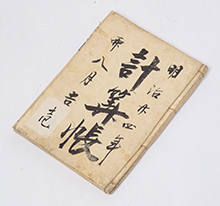 明治廿四年
計算帳
第八月吉